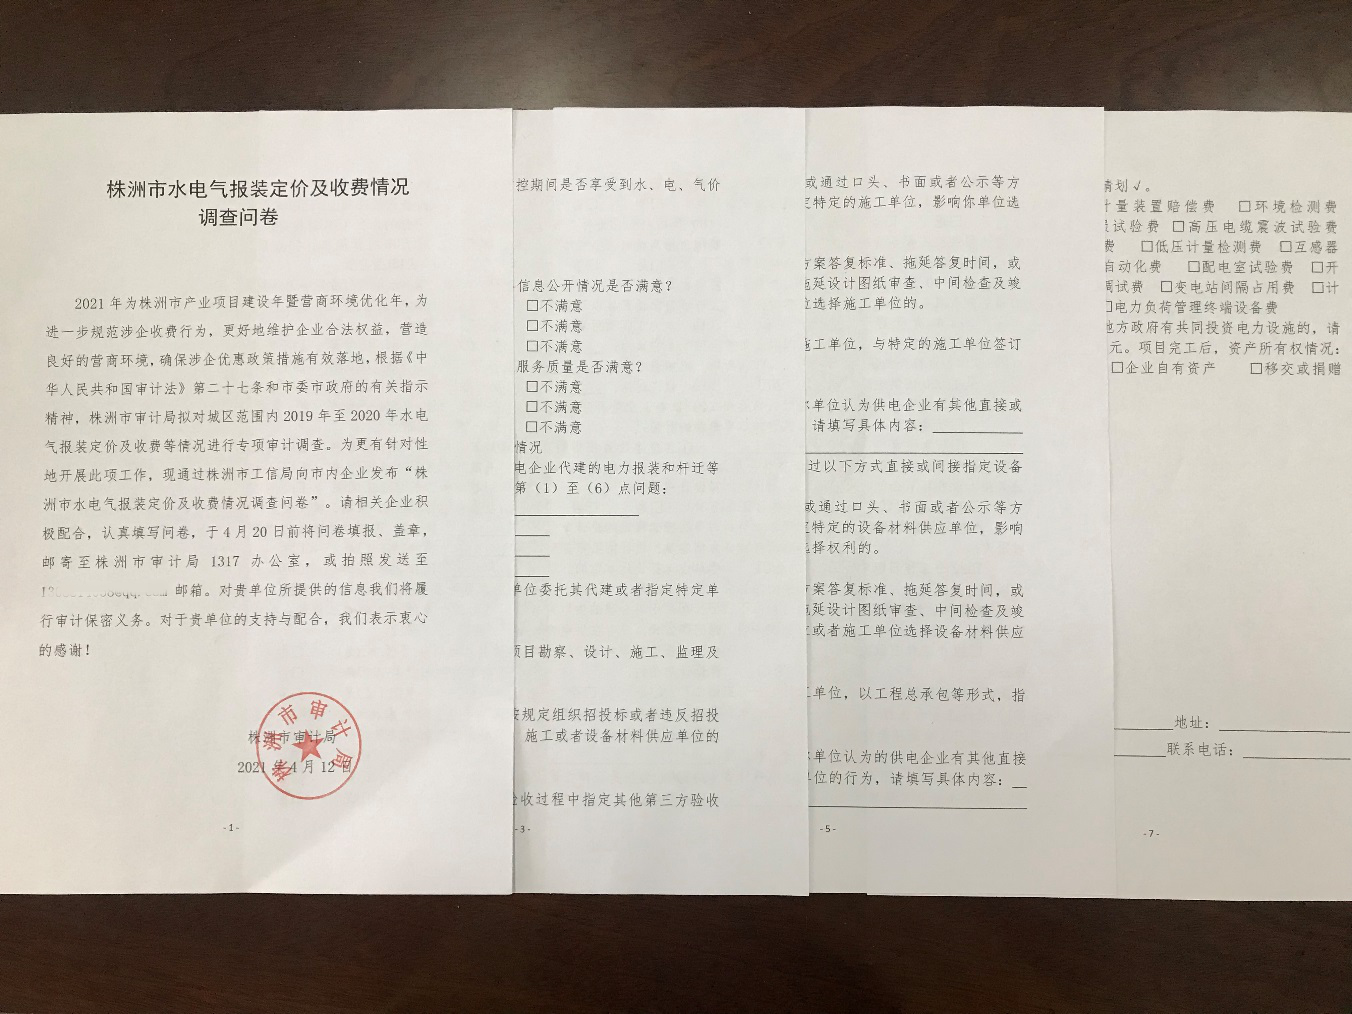 株洲市水电气报装定价及收费情况
调查问卷
2021年为株洲市产业项目建设年暨营商环境优化年，为
进一步规范涉企收费行为，更好地维护企业合法权益，营造
良好的营商环境，确保涉企优惠政策措施有效落地，根据《中
华人民共和国审计法》第二十七条和市委市政府的有关指示
精神，株洲市审计局拟对城区范围内2019年至2020年水电
气报装定价及收费等情况进行专项审计调查。为更有针对性
地开展此项工作，现通过株洲市工信局向市内企业发布“株
洲市水电气报装定价及收费情况调查问卷”。请相关企业积
极配合，认真填写问卷，于4月20日前将问卷填报、盖章，
邮寄至株洲市审计局1317办公室，或拍照发送至
邮箱。对贵单位所提供的信息我们将履
行审计保密义务。对于贵单位的支持与配合，我们表示衷心
的感谢！
株洲市审计局
2021年4月12日
株洲市审计局
-1-
控期间是否享受到水、电、气价
信息公开情况是否满意？
□不满意
□不满意
□不满意
服务质量是否满意？
□不满意
□不满意
□不满意
情况
电企业代建的电力报装和杆迁等
第（1）至（6）点问题：
单位委托其代建或者指定特定单
项目勘察、设计、施工、监理及
按规定组织招投标或者违反招投
施工或者设备材料供应单位的
验收过程中指定其他第三方验收
-3-
或通过口头、书面或者公示等方
定特定的施工单位，影响你单位选
方案答复标准、拖延答复时间，或
拖延设计图纸审查、中间检查及竣
位选择施工单位的。
施工单位，与特定的施工单位签订
单位认为供电企业有其他直接或
请填写具体内容：
过以下方式直接或间接指定设备
或通过口头、书面或者公示等方
定特定的设备材料供应单位，影响
选择权利的。
方案答复标准、拖延答复时间，或
拖延设计图纸审查、中间检查及竣
或者施工单位选择设备材料供应
工单位，以工程总承包等形式，指
单位认为的供电企业有其他直接
单位的行为，请填写具体内容：
-5-
请划√。
计量装置赔偿费 □环境检测费
试验费 □高压电缆震波试验费
费 □低压计量检测费 □互感器
自动化费 □配电室试验费 □开
调试费 □变电站间隔占用费 □计
□电力负荷管理终端设备费
地方政府有共同投资电力设施的，请
元。项目完工后，资产所有权情况：
□企业自有资产 □移交或捐赠
地址：
联系电话：
-7-